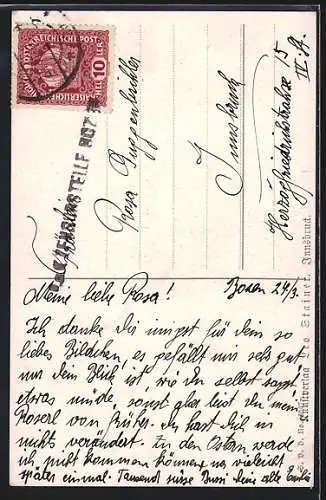 KAISERLICHE
REICHISCHE POST
10
HELLER
Fräulein
Rosa
Innsbruck
Herzogfriedrichstraße 15
III. St.
Kunstverlag Leo Stainer, Innsbruck.
Meine liebe Rosa! Bozen 24/3.
Ich danke dir innigst für dein so
liebes Bildchen, es gefällt mir sehr gut
nur dein Blick ist, wie du selbst sagst
etwas müde, sonst aber bist du mein
Roserl von früher. Du hast dich
nicht verändert. Zu den Ostern werde
ich nicht kommen können, vielleicht
später einmal. Tausend süsse Bussi